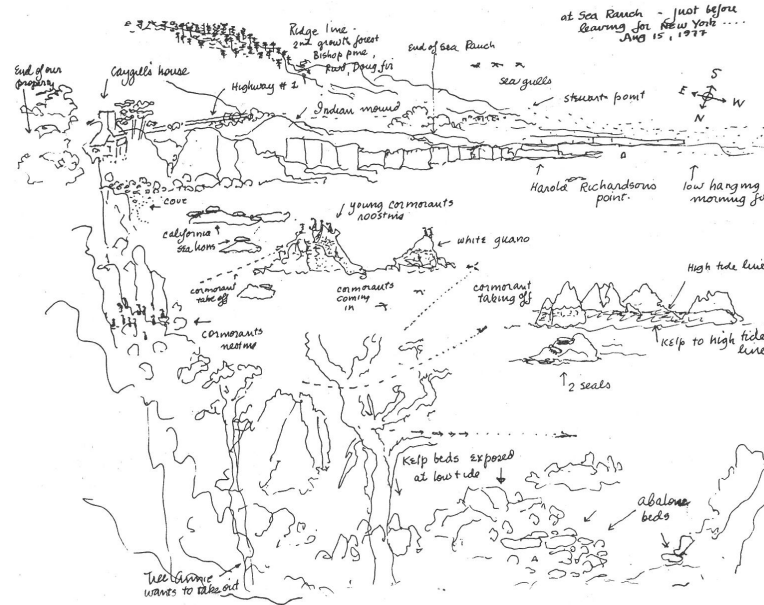 at Sea Ranch - just before
leaving for New York ....
Aug 15, 1977
Ridge line -
2nd growth forest
Bishop pine,
Rwd, Doug fir
End of Sea Ranch
Sea gulls
S
E
W
N
End of our
property
Caygill's house
Highway # 1
Indian mound
Stewart point
Harold Richardsons
point.
low hanging
morning
cove
young cormorants
roosting
california
sea lions
white guano
cormorant
take off
cormorants
coming
in
cormorant
taking off
High tide line
cormorants
nesting
Kelp to high tide
line
2 seals
Kelp beds exposed
at low tide
abalone
beds
Tree Annie
wants to take out